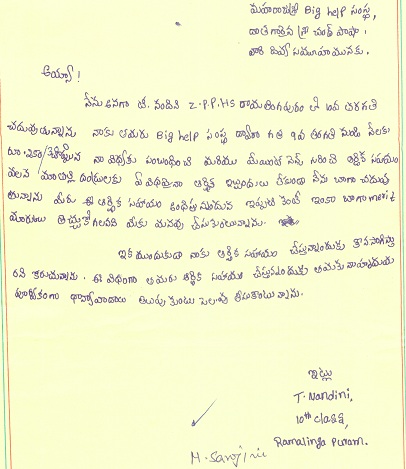 మహారాజశ్రీ Big help సంస్థ,
దాత గారైన శ్రీ చాంద్ పాషా.
వారి దివ్య సముఖమునకు.
అయ్యా!
నేను అనగా టి. నందిని Z.P.P.HS రామలింగపురం లో 10వ తరగతి
చదువుతున్నాను. నాకు తమరు Big help సంస్థ ద్వారా గత 9వ తరగతి నుండి నెలకు
రూ. 250/- చొప్పున నా విద్యకు సంబంధించి మరియు మెయింటెనెన్స్ గురించి ఆర్థిక సహాయం
వలన మా తల్లి దండ్రులకు ఏ విధమైన ఆర్థిక ఇబ్బందులు లేకుండా నేను బాగా చదువు
తున్నాను మీరు ఈ ఆర్థిక సహాయం అందిస్తున్నందున ఇప్పటి కంటే ఇంకా బాగా merit
మార్కులు తెచ్చుకోగలనని మీకు మనవి చేసుకుంటున్నాను.
ఇక ముందుకూడా నాకు ఆర్థిక సహాయం చేస్తున్నందుకు కొనసాగిస్తా
రని కోరుచున్నాను. ఈ విధంగా తమరు ఆర్థిక సహాయం చేస్తున్నందుకు తమకు నా హృదయ
పూర్వకంగా ధన్యవాదాలు తెలుపుకుంటు సెలవు తీసుకుంటున్నాను.
ఇట్లు
T. Nandini,
10th class,
Ramalinga Puram.
M. Sarojini